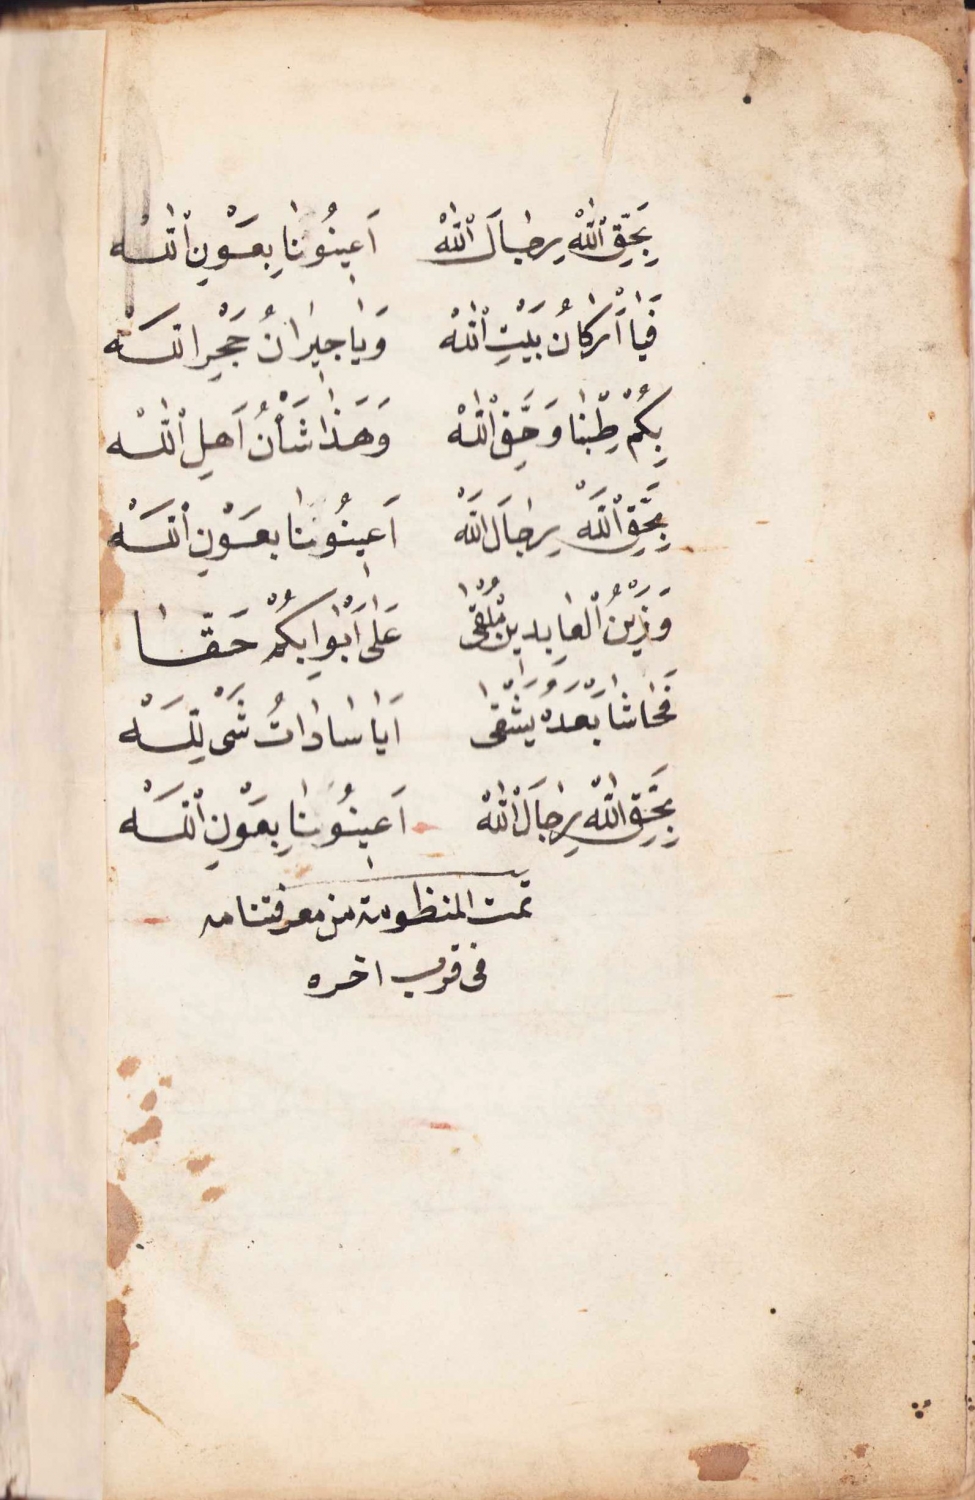 بِحَقِّ اللّٰهْ رِجَالَ اللّٰهْ اَعِينُونَا بِعَوْنِ اللّٰهْ
فَيَا اَرْكَانُ بَيْتِ اللّٰهْ وَيَا جِيرَانُ حَجْرِ اللّٰهْ
بِكُمْ طِبْنَا وَحَقِّ اللّٰهْ وَهٰذَا شَأْنُ اَهلِ اللّٰهْ
بِحَقِّ اللّٰهْ رِجَالَ اللّٰهْ اَعِينُونَا بِعَوْنِ اللّٰهْ
وَزَيْنُ الْعَابِدِينَ مُلْقٰى عَلٰى اَبْوَابِكُمْ حَقّا
فَحَاشَا بَعْدَهُ يَشْقٰى اَيَا سَادَاتُ شَىْ لِلّٰهْ
بِحَقِّ اللّٰهْ رِجَالَ اللّٰهْ اَعِينُونَا بِعَوْنِ اللّٰهْ
تمت المنظومة من معرفتنامه
فى قرب اخره